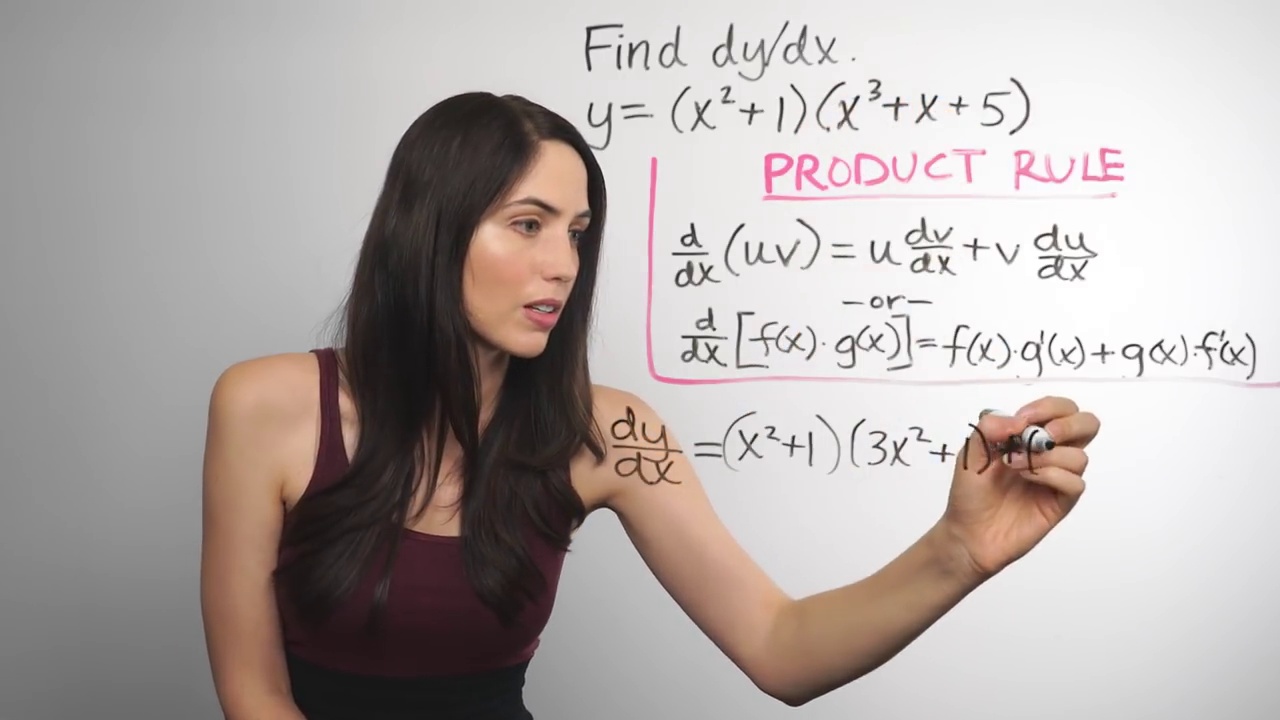 Find dy/dx.
y= (x²+1)(x³+x+5)
PRODUCT RULE
d/dx (uv) = u dv/dx + v du/dx
-or-
d/dx [f(x)·g(x)] = f(x)·g'(x) + g(x)·f'(x)
dy/dx = (x²+1)(3x²+1)+(